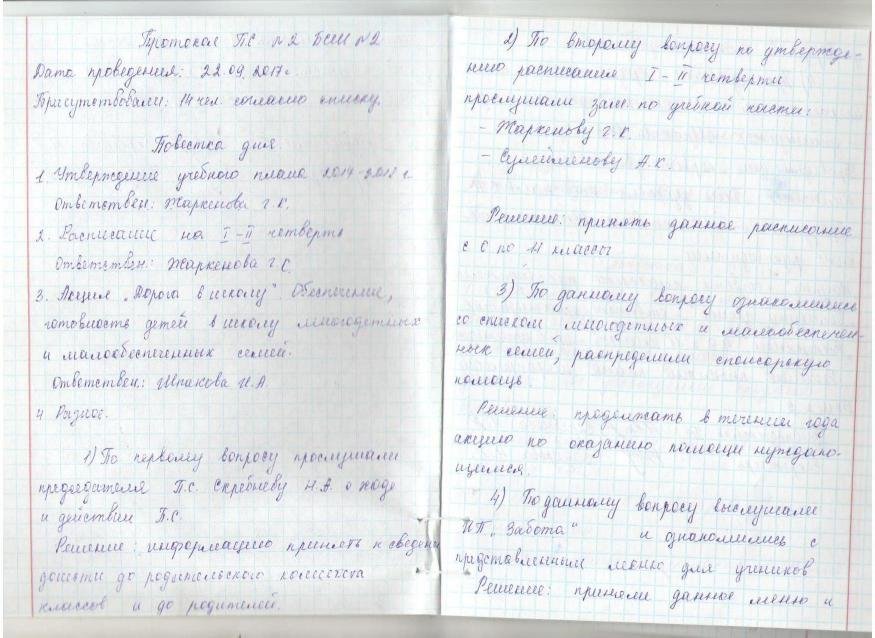 Протокол П.С №2 БСШ №2
Дата проведения: 22.09.2017г.
Присутствовали: 14 чел. согласно списку.
Повестка дня.
1. Утверждение учебного плана 2017-2018 г.
Ответствен: Жаркенова Г.К.
2. Расписание на I-II четверть
Ответствен: Жаркенова Г.С.
3. Акция "Дорога в школу" Обеспечение,
готовность детей в школу многодетных
и малообеспеченных семей.
Ответствен: Шпакова И.А.
4 Разное.
1) По первому вопросу прослушали
председателя П.С. Скребневу Н.А. о ходе
и действии П.С.
Решение: информацию принять к сведени
довести до родительского комитета
классов и до родителей.
2) По второму вопросу по утвержде-
нию расписания I-II четверти
прослушали зам по учебной части:
- Жаркенову Г.К.
- Сулейменову А.К.
Решение: принять данное расписание
с 0 по 11 классы
3) По данному вопросу ознакомились
со списком многодетных и малообеспечен-
ных семей, распределили спонсорскую
помощь
Решение: продолжать в течении года
акцию по оказанию помощи нуждаю-
щимся.
4) По данному вопросу выслушали
ИП "Забота" и ознакомились с
представленным меню для учеников
Решение: приняли данное меню и